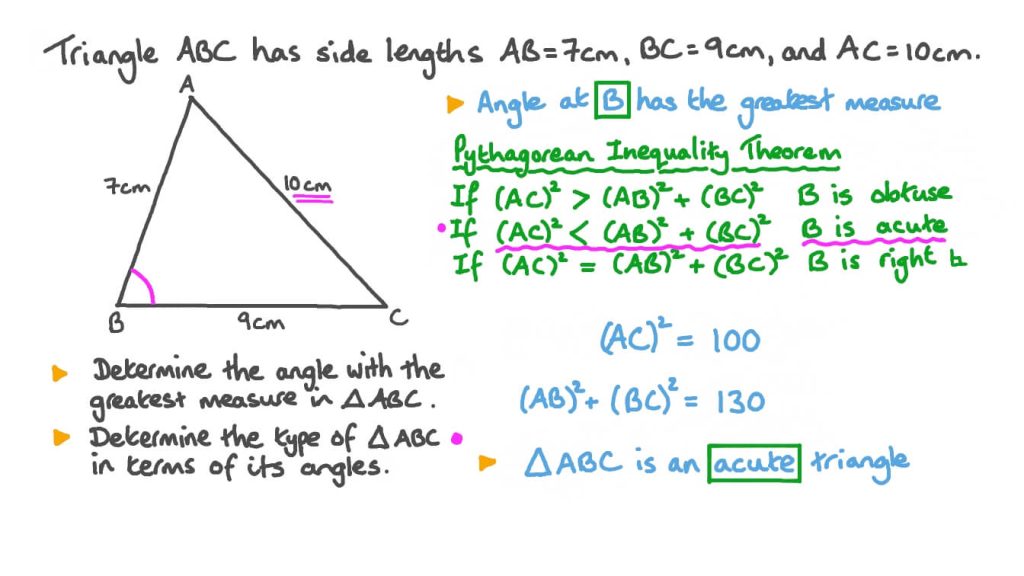 Triangle ABC has side lengths AB=7cm, BC=9cm, and AC=10cm.
A
7cm
10cm
B
9cm
C
▸ Determine the angle with the
greatest measure in △ABC.
▸ Determine the type of △ABC
in terms of its angles.
▸ Angle at B has the greatest measure
Pythagorean Inequality Theorem
If (AC)² > (AB)² + (BC)² B is obtuse
• If (AC)² < (AB)² + (BC)² B is acute
If (AC)² = (AB)² + (BC)² B is right ⊾
(AC)² = 100
(AB)² + (BC)² = 130
▸ △ABC is an acute triangle